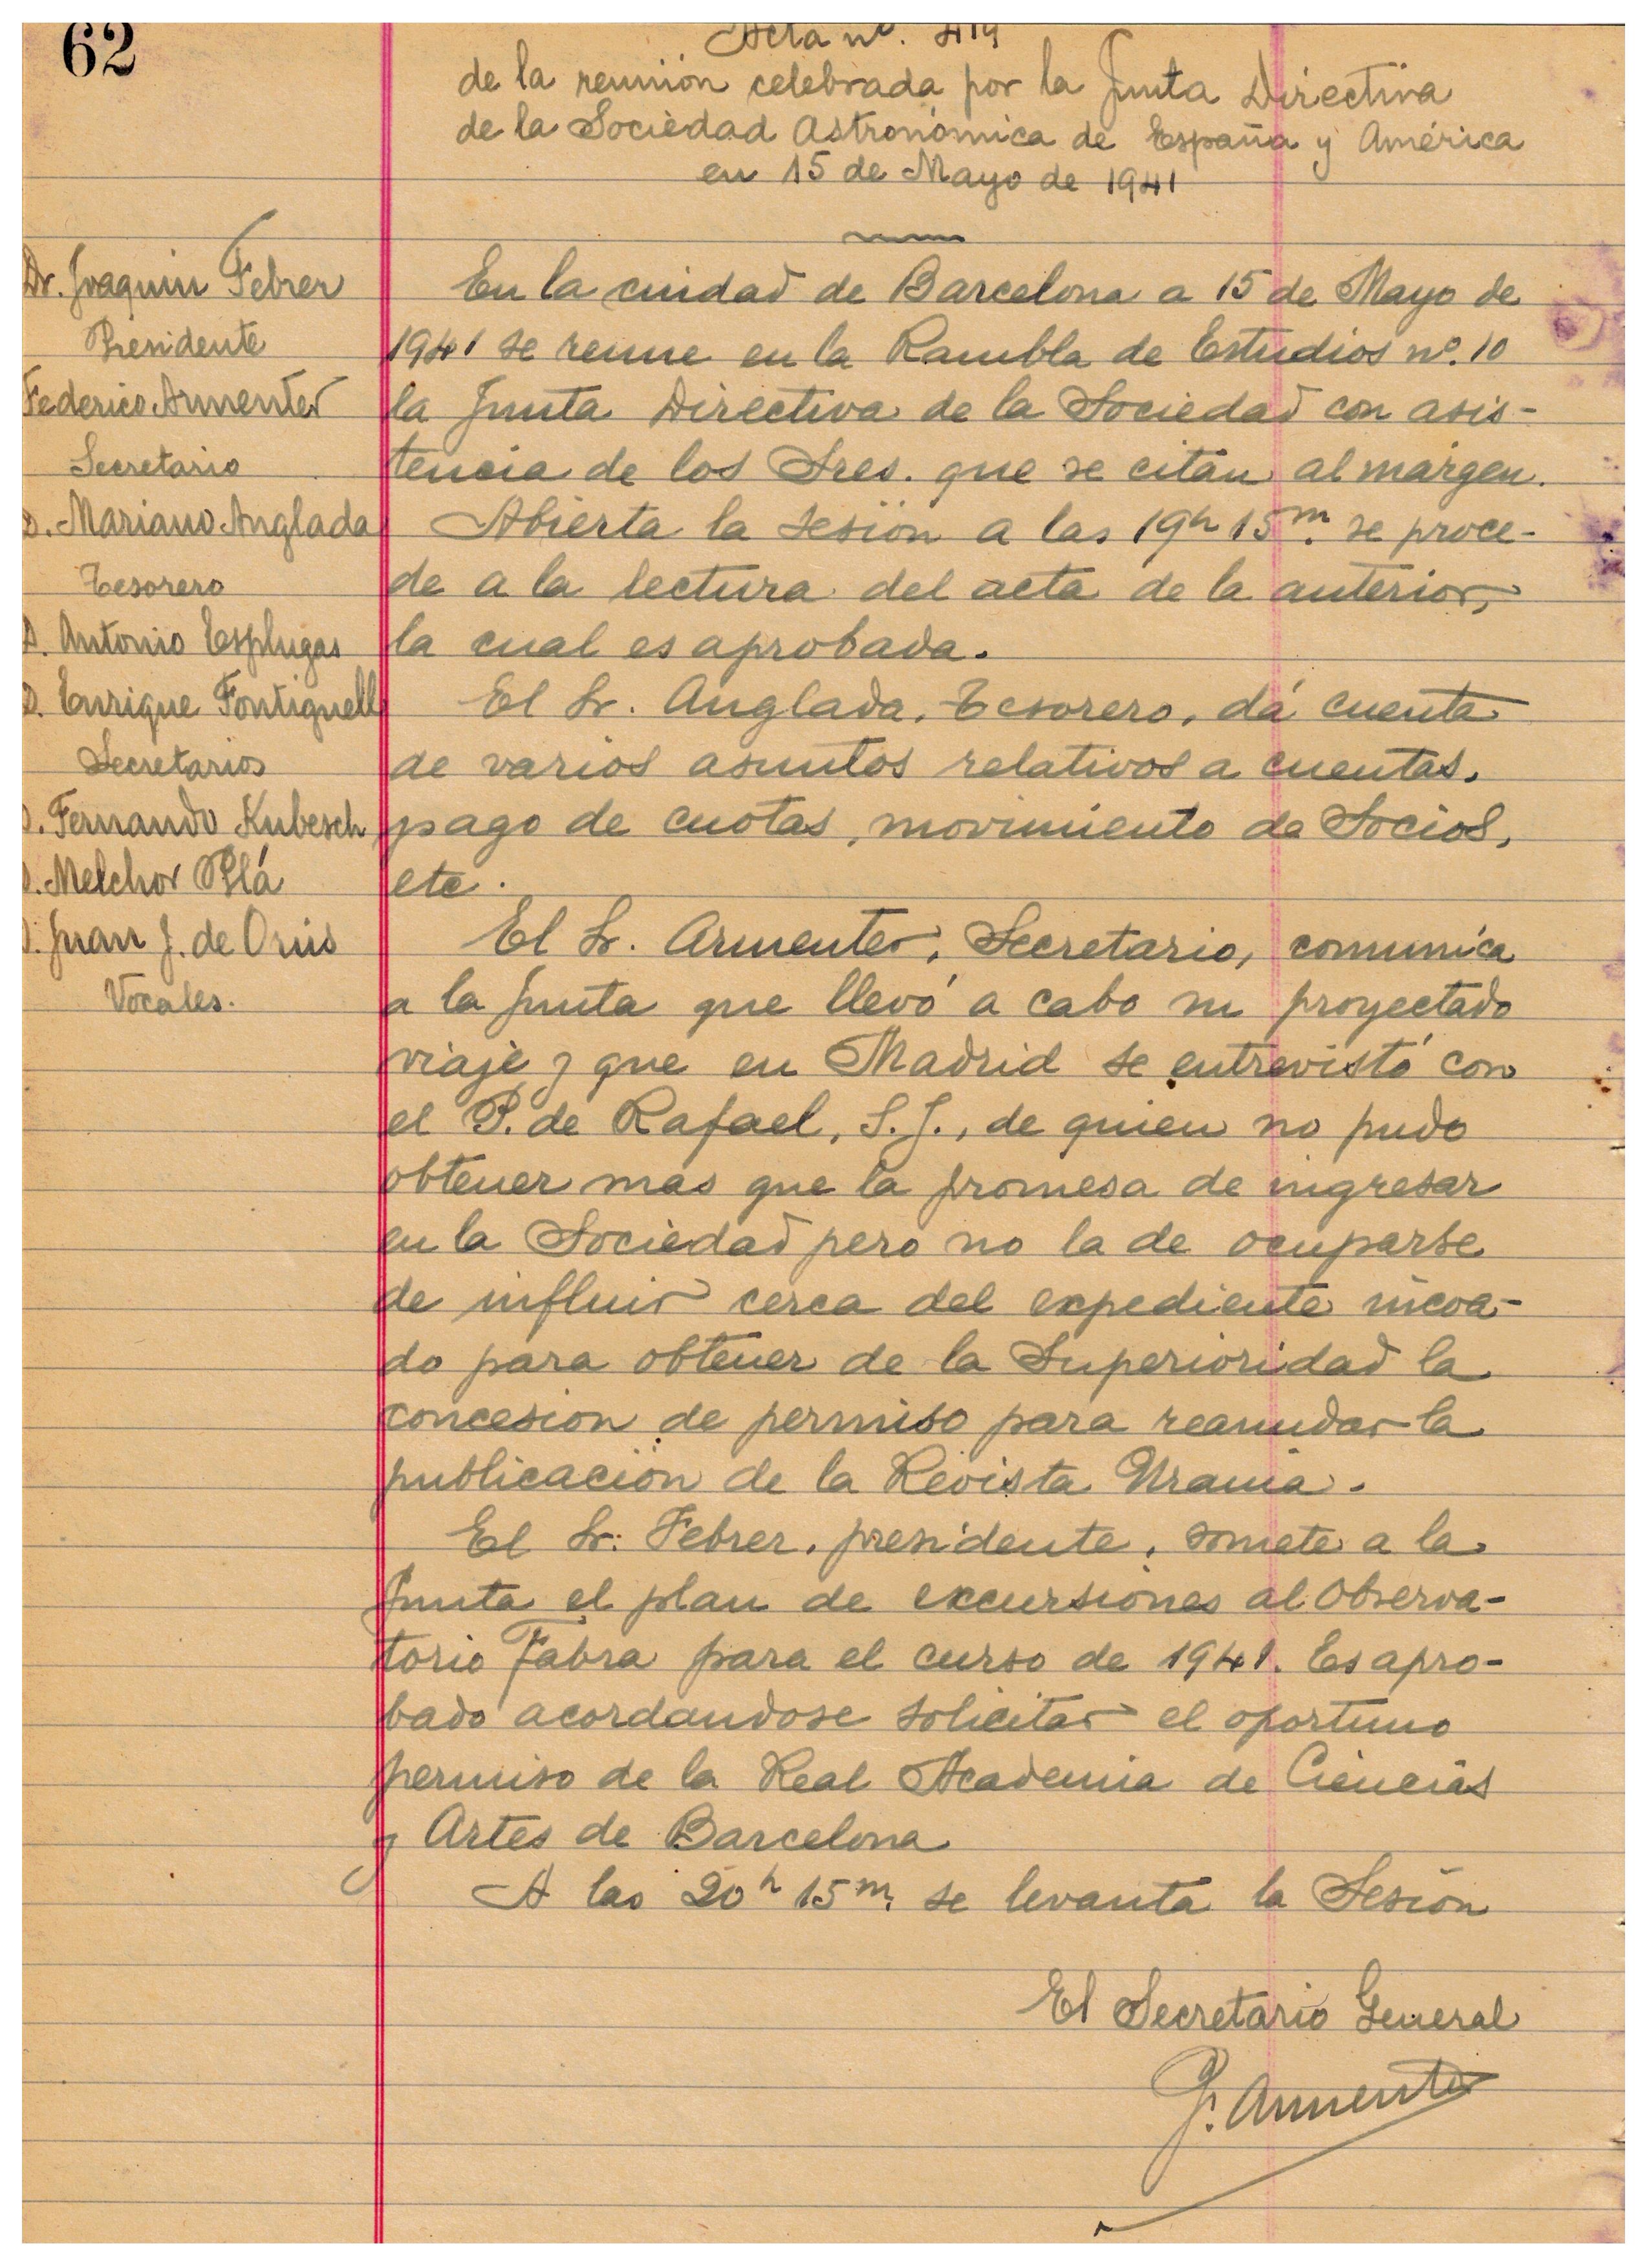 62
Acta nº. 419
de la reunión celebrada por la Junta Directiva
de la Sociedad Astronómica de España y América
en 15 de Mayo de 1941
Dr. Joaquin Febrer
Presidente
Federico Armenter
Secretario
D. Mariano Anglada
Tesorero
D. Antonio Esplugas
D. Enrique Fontiguell
Secretarios
D. Fernando Kubesch
D. Melchor Plá
D. Juan J. de Orús
Vocales.
En la ciudad de Barcelona a 15 de Mayo de
1941 se reune en la Rambla de Estudios nº. 10
la Junta Directiva de la Sociedad con asis-
tencia de los Sres. que se citan al márgen.
Abierta la sesión a las 19h 15m. se proce-
de a la lectura del acta de la anterior,
la cual es aprobada.
El Sr. Anglada, Tesorero, dá cuenta
de varios asuntos relativos a cuentas,
pago de cuotas, movimiento de Socios,
etc.
El Sr. Armenter, Secretario, comunica
a la Junta que llevó a cabo su proyectado
viaje y que en Madrid se entrevistó con
el P. de Rafael, S.J., de quien no pudo
obtener mas que la promesa de ingresar
en la Sociedad pero no la de ocuparse
de influir cerca del expediente incoa-
do para obtener de la Superioridad la
concesion de permiso para reanudar la
publicación de la Revista Urania.
El Sr. Febrer, presidente, somete a la
Junta el plan de excursiones al Observa-
torio Fabra para el curso de 1941. Es apro-
bado acordandose solicitar el oportuno
permiso de la Real Academia de Ciencias
y Artes de Barcelona
A las 20h 15m. se levanta la Sesión
El Secretario General
F. Armenter